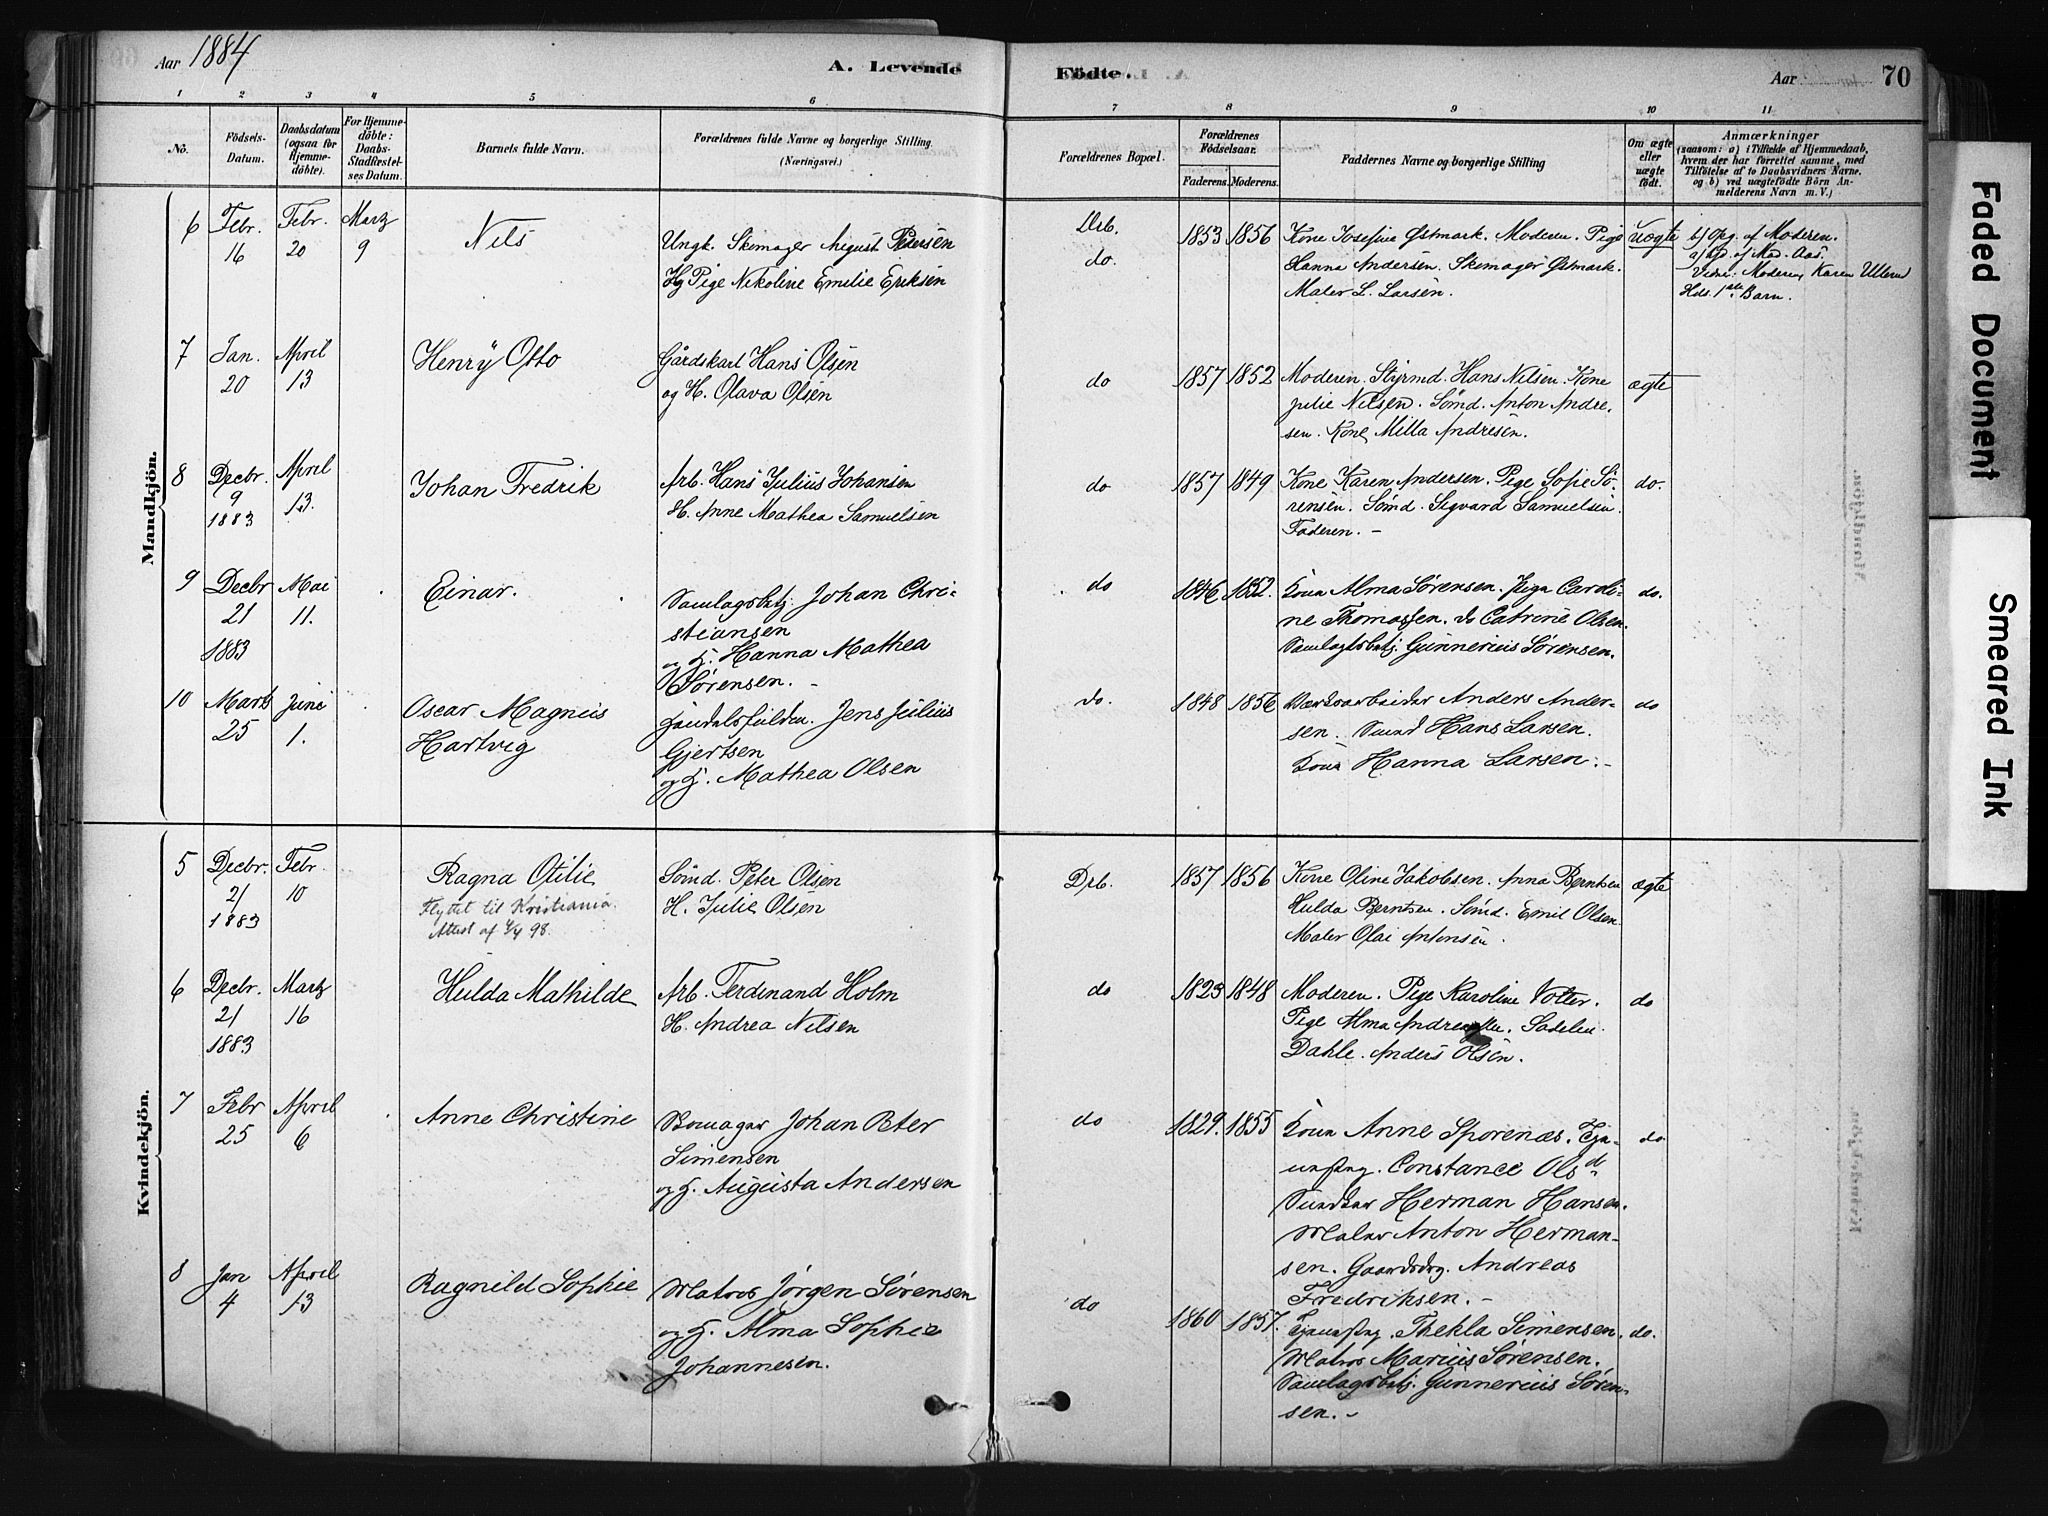 Aar 1884
A. Levende Födte.
Aar
70
1 2 3 4 5 6 7 8 9 10 11
No.
Födsels-Datum.
Daabsdatum (ogsaa for Hjemmedöbte).
For Hjemmedöbte: Daabs-Stadfæstelses Datum.
Barnets fulde Navn.
Forældrenes fulde Navne og borgerlige Stilling. (Næringsvei.)
Forældrenes Bopæl.
Forældrenes Födselsaar.
Faderens. Moderens.
Faddernes Navne og borgerlige Stilling
Om ægte eller uægte födt.
Anmærkninger
(saasom: a) i Tilfælde af Hjemmedaab,
hvem der har forrettet samme, med
Tilföielse af to Daabsvidners Navne.
og b) ved uægtefödte Börn An-
melderens Navn m. V.)
Mandkjön.
6 Febr. 16 Febr. 20 Martz 9
Nils
Ungk. Skomager August Petersen
Og Pige Nikoline Emilie Eriksen
Drb.
do.
1853 1856
Kone Josefine Østmark. Moderen. Pige
Hanna Andersen. Skomager Østmark.
Maler L. Larsen.
Uægte
b) Opg. af Moderen.
a) Af Mad. Aas.
Vidner Moderen, Karen Ullerud
Hds. 1ste Barn.
7 Jan. 20 April 13
Henry Otto
Gårdskarl Hans Olsen
og H. Olava Olsen
do
1857 1852
Moderen. Styrmd. Hans Nilsen. Kone
Julie Nilsen. Sømd. Anton Andre-
sen. Kone Milla Andresen.
ægte
8 Decbr. 9 1883 April 13.
Johan Fredrik
Arb. Hans Julius Johansen
H. Anne Mathea Samuelsen
do
1857 1849
Kone Karen Andersen. Pige Sofie Sö-
rensen. Sømd. Sigvard Samuelsen.
Faderen. -
do.
9 Decbr 21 1883 Mai 11.
Einar.
Samlagsbetj. Johan Chri-
stiansen
og H. Hanna Mathea
Sørensen. -
do
1846 1852.
Kone Alma Sørensen. Pige Caroli-
ne Thomassen. do Catrine Olsen.
Samlagsbetj. Gunnerius Sørensen.
do.
10 Marts 25 Juni 1.
Oscar Magnus
Hartvig
Jens Julius
Gjertsen
og H. Mathea Olsen
do.
1848 1856
Værksarbeider Anders Ander-
sen. Hans Larsen.
Kone Hanna Larsen. -
do
Kvindekjön.
5 Decbr. 21 1883 Febr. 10
Ragna Otilie
Flyttet til Kristiania.
Attest af 4/4 98.
Sømd. Peter Olsen
H. Julie Olsen
Drb.
1857 1856
Kone Oline Jakobsen. Anna Berntsen
Hulda Berntsen. Sømd. Emil Olsen
Maler Olai Antonsen.
ægte
6 Decbr. 21 1883 Martz 16
Hulda Mathilde
Arb. Ferdinand Holm
H. Andrea Nilsen
do
1823 1848
Moderen. Pige Karoline Volter.
Pige Alma
Dahle. Anders Olsen.
do
7 Febr 25 April 6
Anne Christine
Skomager Johan Peter
Simensen
og H. Augusta Andersen
do
1829. 1855
Kone Anne Sporenæs. Tje-
nestpg. Constance Olsd
Herman Hansen.
Maler Anton Herman-
sen. Gaardsdrg. Andreas
Fredriksen. -
do
8 Jan 4 April 13
Ragnild Sophie
Matros Jørgen Sørensen
og H. Alma Sophie
Johannesen.
do
1860 1857.
Tjenestpg. Thekla Simensen.
Matros Marius Sørensen.
Samlagsbetj. Gunnerius Søren-
sen. -
do.
Faded Document
Smeared Ink